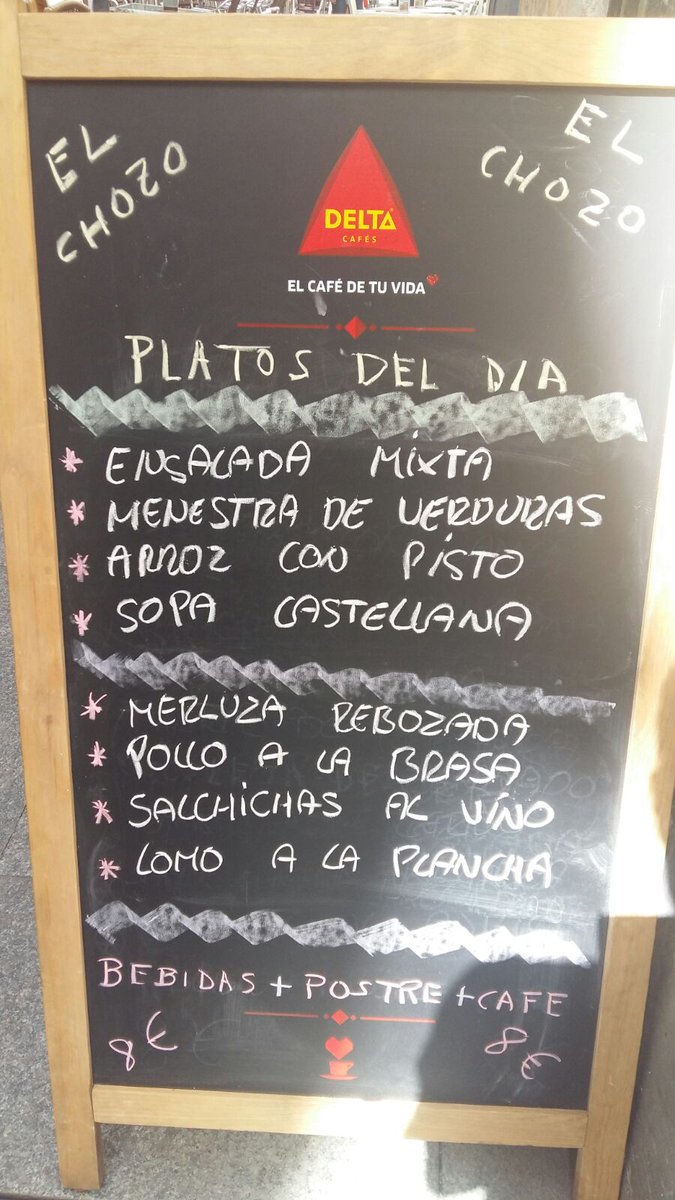 EL CHOZO
EL CHOZO
DELTA
CAFÉS
EL CAFÉ DE TU VIDA
PLATOS DEL DIA
* ENSALADA MIXTA
* MENESTRA DE VERDURAS
* ARROZ CON PISTO
* SOPA CASTELLANA
* MERLUZA REBOZADA
* POLLO A LA BRASA
* SALCHICHAS AL VINO
* LOMO A LA PLANCHA
BEBIDAS + POSTRE + CAFE
8€ 8€